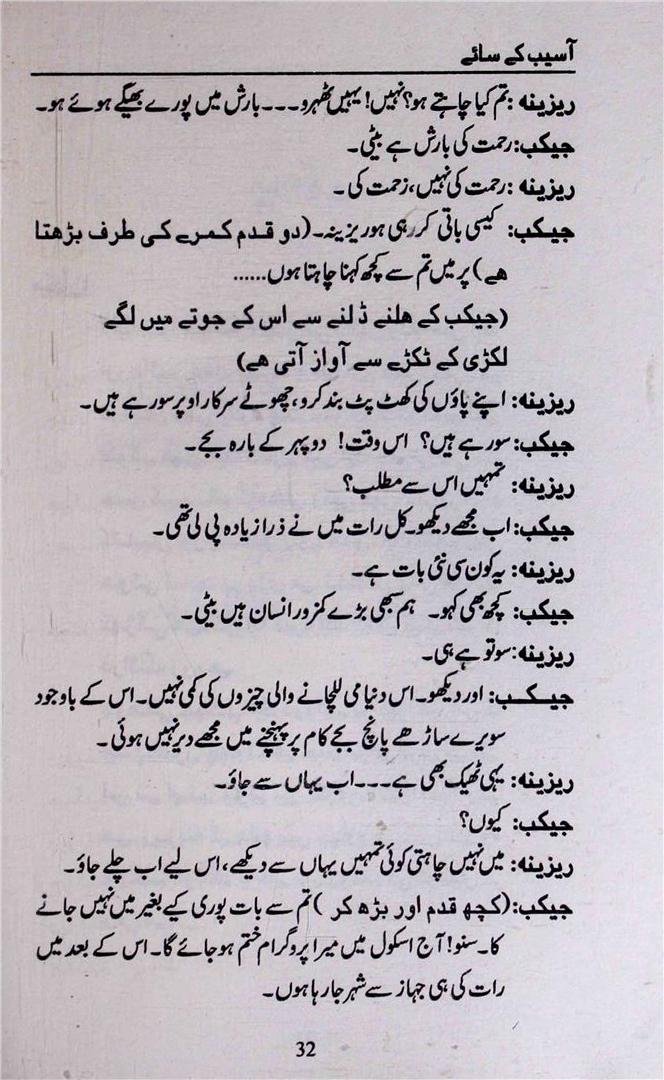 آسیب کے سائے
ریزینہ: تم کیا چاہتے ہو؟ نہیں! یہیں ٹھہرو۔۔۔ بارش میں پورے بھیگے ہوئے ہو۔
جیکب: رحمت کی بارش ہے بیٹی۔
ریزینہ: رحمت کی نہیں، زحمت کی۔
جیکب: کیسی باتی کر رہی ہو ریزینہ۔ (دو قدم کمرے کی طرف بڑھتا
ھے) پر میں تم سے کچھ کہنا چاہتا ہوں......
(جیکب کے ھلنے ڈلنے سے اس کے جوتے میں لگے
لکڑی کے ٹکڑے سے آواز آتی ھے)
ریزینہ: اپنے پاؤں کی کھٹ پٹ بند کرو، چھوٹے سرکار اوپر سو رہے ہیں۔
جیکب: سو رہے ہیں؟ اس وقت! دوپہر کے بارہ بجے۔
ریزینہ: تمہیں اس سے مطلب؟
جیکب: اب مجھے دیکھو۔ کل رات میں نے ذرا زیادہ پی لی تھی۔
ریزینہ: یہ کون سی نئی بات ہے۔
جیکب: کچھ بھی کہو۔ ہم سبھی بڑے کمزور انسان ہیں بیٹی۔
ریزینہ: سو تو ہے ہی۔
جیکب: اور دیکھو۔ اس دنیا می للچانے والی چیزوں کی کمی نہیں۔ اس کے باوجود
سویرے ساڑھے پانچ بجے کام پر پہنچنے میں مجھے دیر نہیں ہوئی۔
ریزینہ: یہی ٹھیک بھی ہے۔۔۔ اب یہاں سے جاؤ۔
جیکب: کیوں؟
ریزینہ: میں نہیں چاہتی کوئی تمہیں یہاں سے دیکھے، اس لیے اب چلے جاؤ۔
جیکب: (کچھ قدم اور بڑھ کر) تم سے بات پوری کیے بغیر میں نہیں جانے
کا۔ سنو! آج اسکول میں میرا پروگرام ختم ہو جائے گا۔ اس کے بعد میں
رات کی ہی جہاز سے شہر جا رہا ہوں۔
32